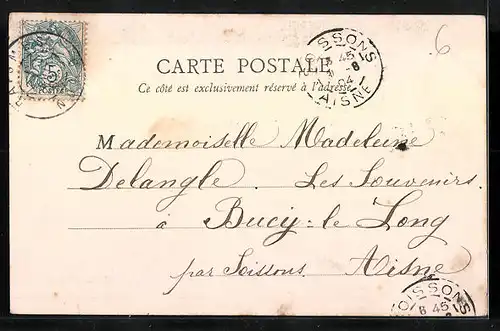 6
SOISSONS
45
8
04
AISNE
CARTE POSTALE
Ce côté est exclusivement réservé à l'adresse
Mademoiselle Madeleine
Delangle. Les Souvenirs.
à Bucy-le Long
par Soissons. Aisne
SOISSONS
45